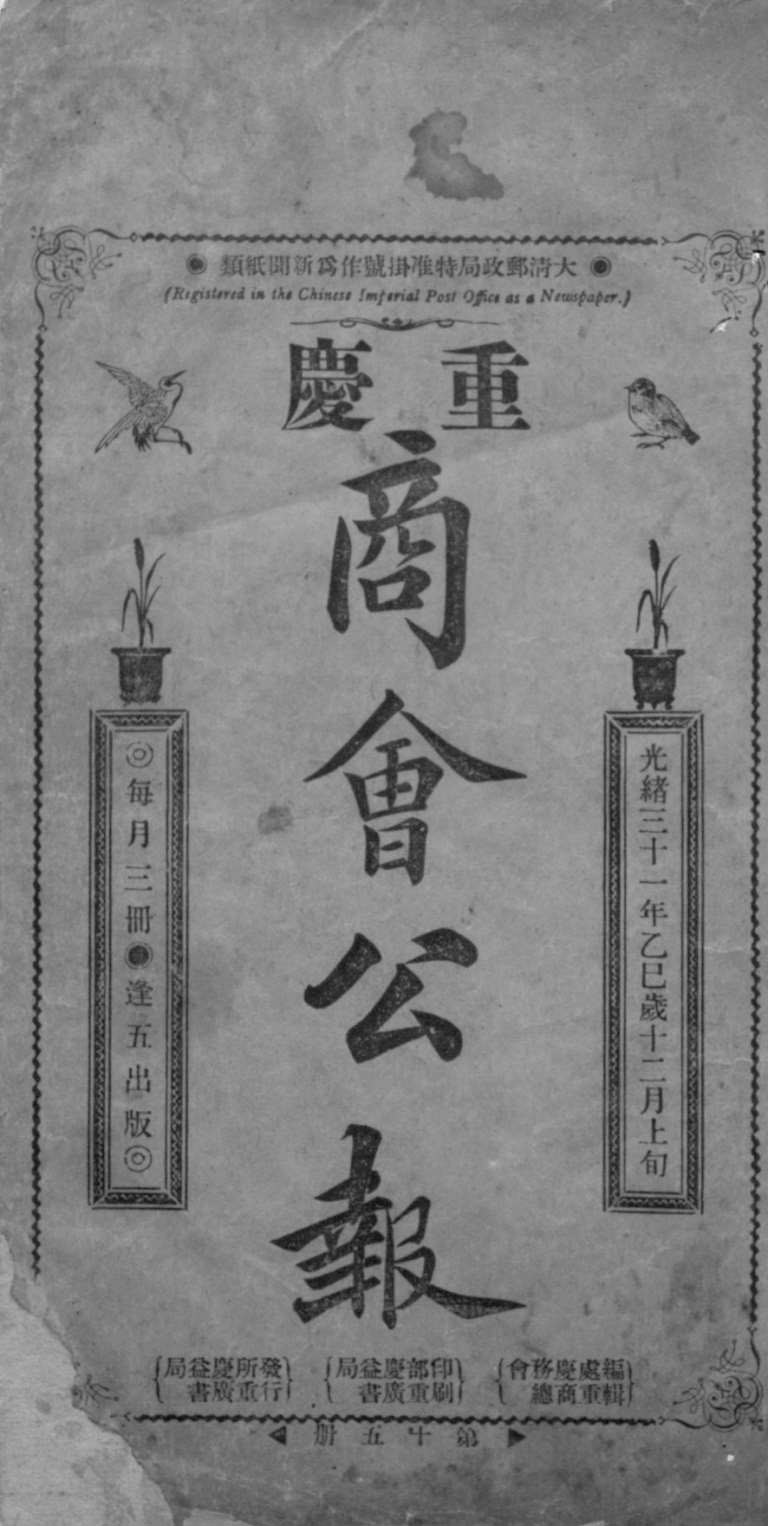 大清郵政局特准掛號作爲新聞紙類
(Registered in the Chinese Imperial Post Office as a Newspaper.)
重慶
商會公報
光緒三十一年乙巳歲十二月上旬
每月三冊●逢五出版
編輯處重慶商務總會
印刷部重慶廣益書局
發行所重慶廣益書局
第十五册